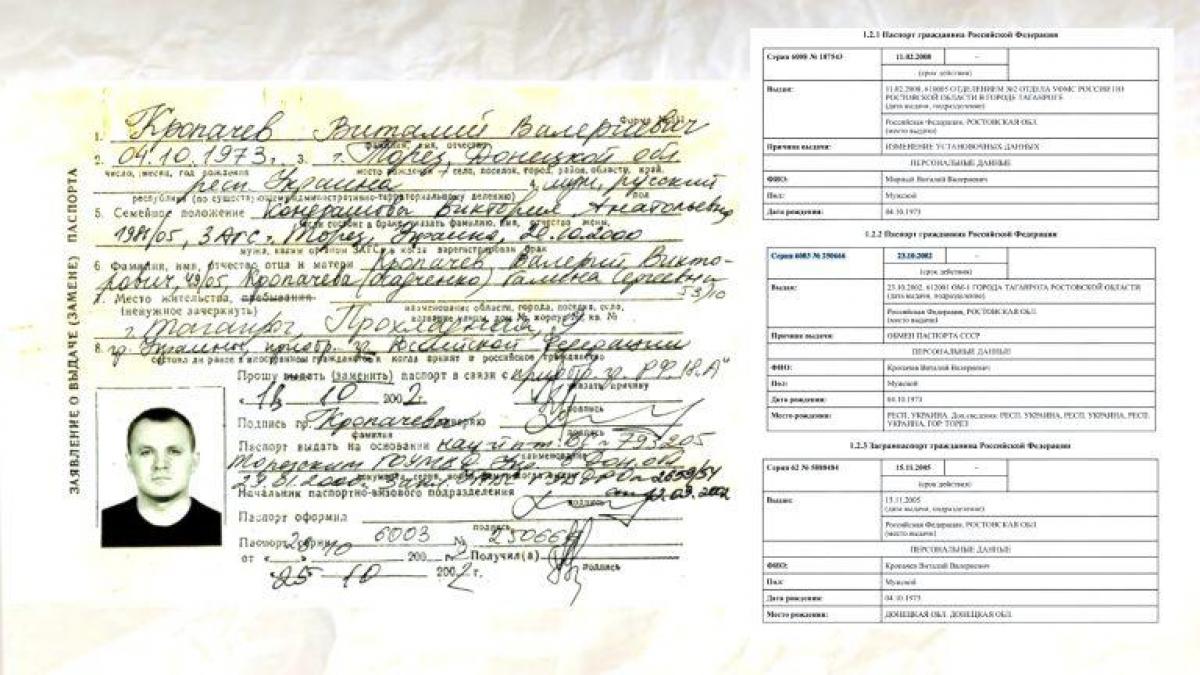 ЗАЯВЛЕНИЕ О ВЫДАЧЕ (ЗАМЕНЕ) ПАСПОРТА
1. Кропачев Виталий Валериевич
фамилия, имя, отчество
2. 04.10.1973 3. г. Торез, Донецкой обл
число, месяц, год рождения место рождения — село, поселок, город, район, область, край,
респ. Украина 4. муж, русский
республика (по существующему административно-территориальному делению) пол
5. Семейное положение Кондрашовы Виктория Анатольевна
1981/05, ЗАГС г. Торез, Украина 20.10.2000
мужа, каким органом ЗАГСа и когда зарегистрирован брак
6. Фамилия, имя, отчество отца и матери Кропачев Валерий Викто-
рович, 49/05, Кропачева (Харченко) Галина Сергеевна
53/10
7. Место жительства, пребывания
(ненужное зачеркнуть) наименование области, города, поселка, село,
название улицы, дом №, корпус №, кв. №
г. Таганрог, Прохладная, 9
8. гр. Украины, приобр. гр. Российской Федерации
состоял ли ранее в иностранном гражданстве и когда принят в российское гражданство
Прошу выдать (заменить) паспорт в связи с приобр. гр. РФ
указать причину
« 16 » 10 2002 г.
подпись
Подпись гр. Кропачева заверяю
фамилия подпись
Паспорт выдать на основании 793205
наименование
Торезским
12.09.2002
Начальник паспортно-визового подразделения
подпись
Паспорт оформил
подпись
Паспорт серии 6003 № 250666
от « 23 » 10 2002 г. Получил(а)
подпись
25 10 2002 г.
1.2.1 Паспорт гражданина Российской Федерации
Серия 6008 № 187543 11.02.2008 -
(срок действия)
Выдан: 11.02.2008, 610005 ОТДЕЛЕНИЕМ №2 ОТДЕЛА УФМС РОССИИ ПО
РОСТОВСКОЙ ОБЛАСТИ В ГОРОДЕ ТАГАНРОГЕ
(дата выдачи, подразделение)
Российская Федерация, РОСТОВСКАЯ ОБЛ.
(место выдачи)
Причина выдачи: ИЗМЕНЕНИЕ УСТАНОВОЧНЫХ ДАННЫХ
ПЕРСОНАЛЬНЫЕ ДАННЫЕ
ФИО: Мирный Виталий Валериевич
Пол: Мужской
Дата рождения: 04.10.1973
1.2.2 Паспорт гражданина Российской Федерации
Серия 6003 № 250666 23.10.2002 -
(срок действия)
Выдан: 23.10.2002, 612001 ОМ-1 ГОРОДА ТАГАНРОГА РОСТОВСКОЙ ОБЛАСТИ
(дата выдачи, подразделение)
Российская Федерация, РОСТОВСКАЯ ОБЛ.
(место выдачи)
Причина выдачи: ОБМЕН ПАСПОРТА СССР
ПЕРСОНАЛЬНЫЕ ДАННЫЕ
ФИО: Кропачев Виталий Валериевич
Пол: Мужской
Дата рождения: 04.10.1973
Место рождения: РЕСП. УКРАИНА. Доп. сведения: РЕСП. УКРАИНА, РЕСП. УКРАИНА, РЕСП.
УКРАИНА, ГОР. ТОРЕЗ
1.2.3 Загранпаспорт гражданина Российской Федерации
Серия 62 № 5888484 15.11.2005 -
(срок действия)
Выдан: 15.11.2005
(дата выдачи, подразделение)
Российская Федерация, РОСТОВСКАЯ ОБЛ.
(место выдачи)
ПЕРСОНАЛЬНЫЕ ДАННЫЕ
ФИО: Кропачев Виталий Валериевич
Пол: Мужской
Дата рождения: 04.10.1973
Место рождения: ДОНЕЦКАЯ ОБЛ. ДОНЕЦКАЯ ОБЛ.